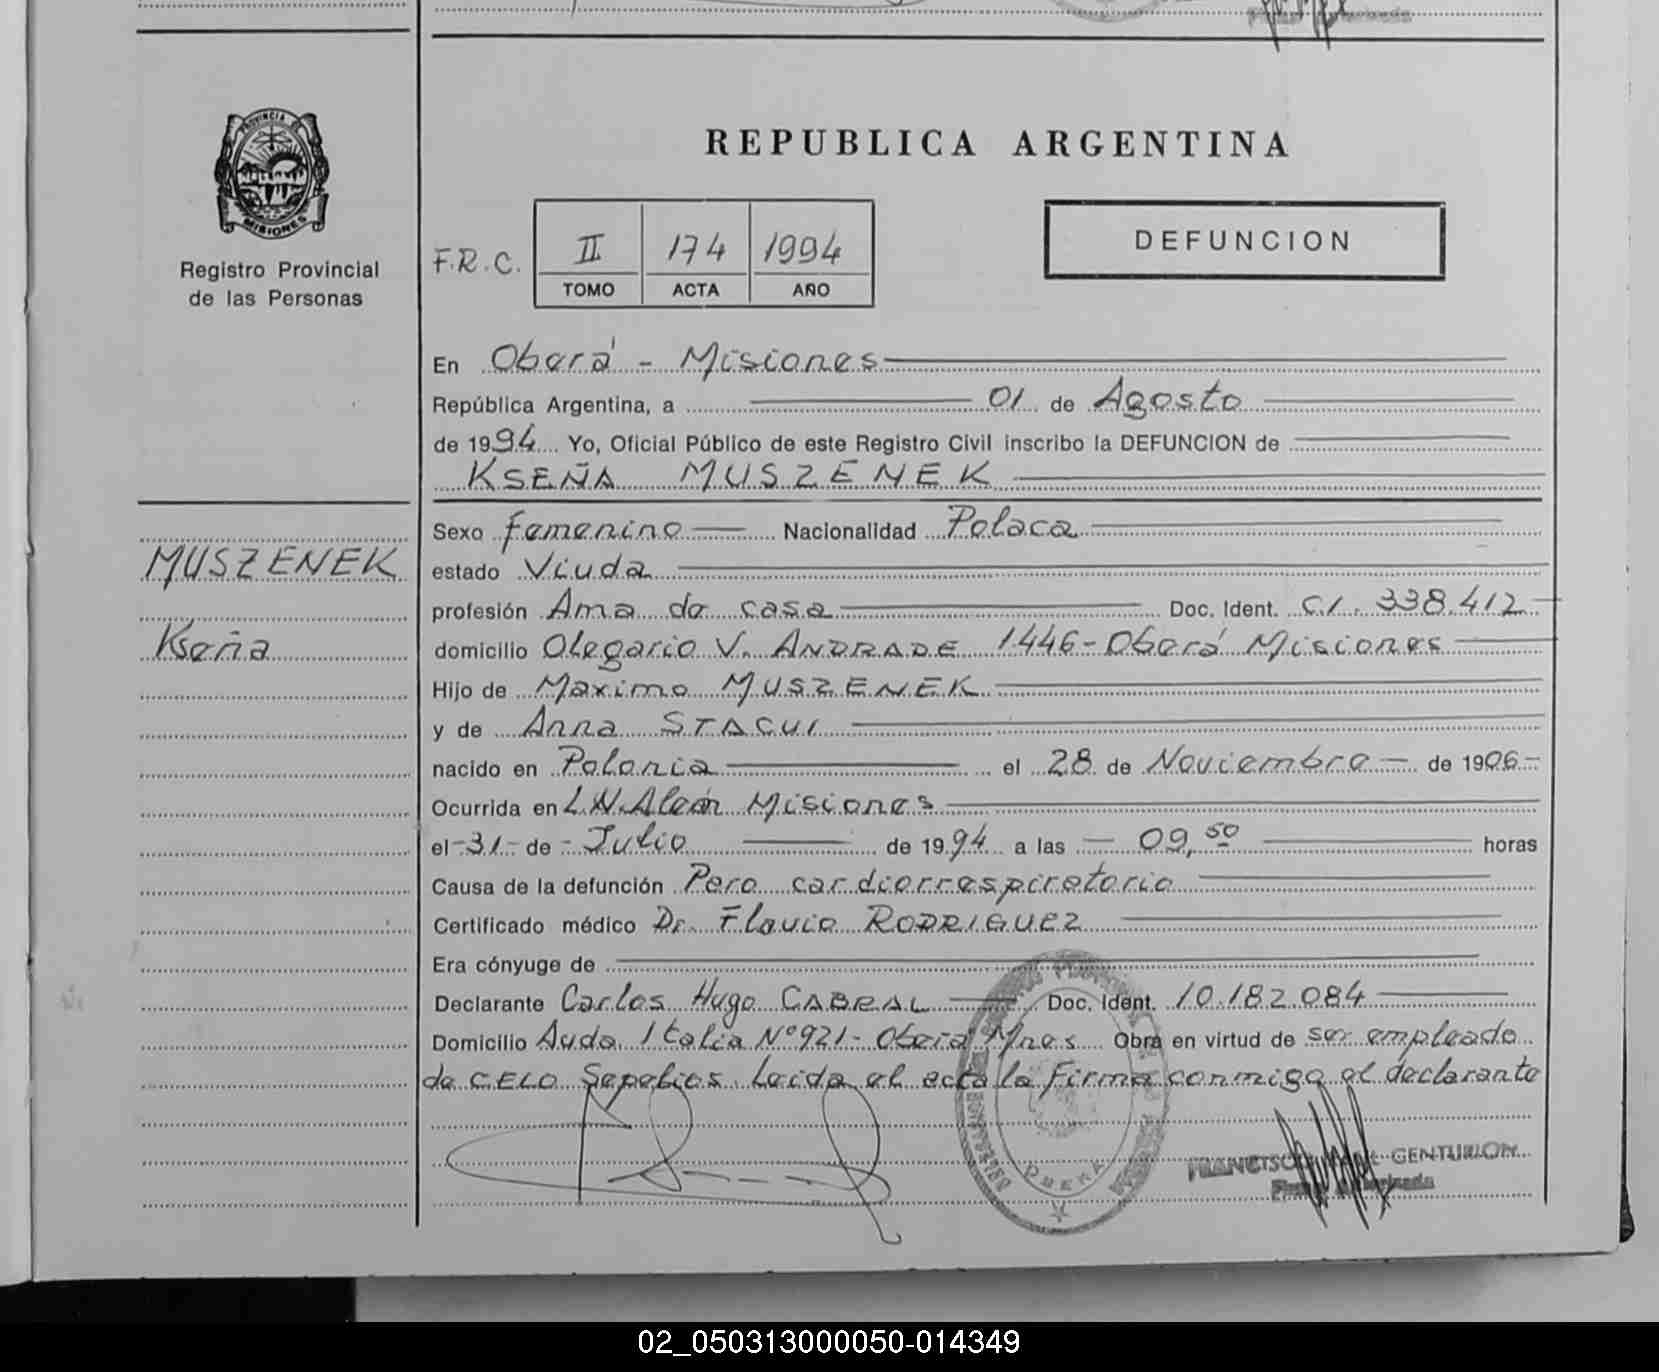 PROVINCIA DE
MISIONES
Registro Provincial
de las Personas
REPUBLICA ARGENTINA
F.R.C.
II 174 1994
TOMO ACTA AÑO
DEFUNCION
En Oberá - Misiones
República Argentina, a 01 de Agosto
de 1994 Yo, Oficial Público de este Registro Civil inscribo la DEFUNCION de
KSEÑA MUSZENEK
MUSZENEK
Kseña
Sexo femenino Nacionalidad Polaca
estado Viuda
profesión Ama de casa Doc. Ident. C.I. 338.412
domicilio Olegario V. ANDRADE 1446-Oberá Misiones
Hijo de Maximo MUSZENEK
y de Anna STACUI
nacido en Polonia el 28 de Noviembre de 1906
Ocurrida en L.N.Alem Misiones
el 31 de Julio de 1994 a las 09,50 horas
Causa de la defunción Paro cardiorrespiratorio
Certificado médico Dr. Flavio RODRIGUEZ
Era cónyuge de
Declarante Carlos Hugo CABRAL Doc. Ident. 10.182.084
Domicilio Avda. Italia Nº921- Oberá Mnes Obra en virtud de ser empleado
de CELO Sepelios. Leida el acta la firma conmigo el declarante
OBERA
FRANCISCO CENTURION
02_050313000050-014349